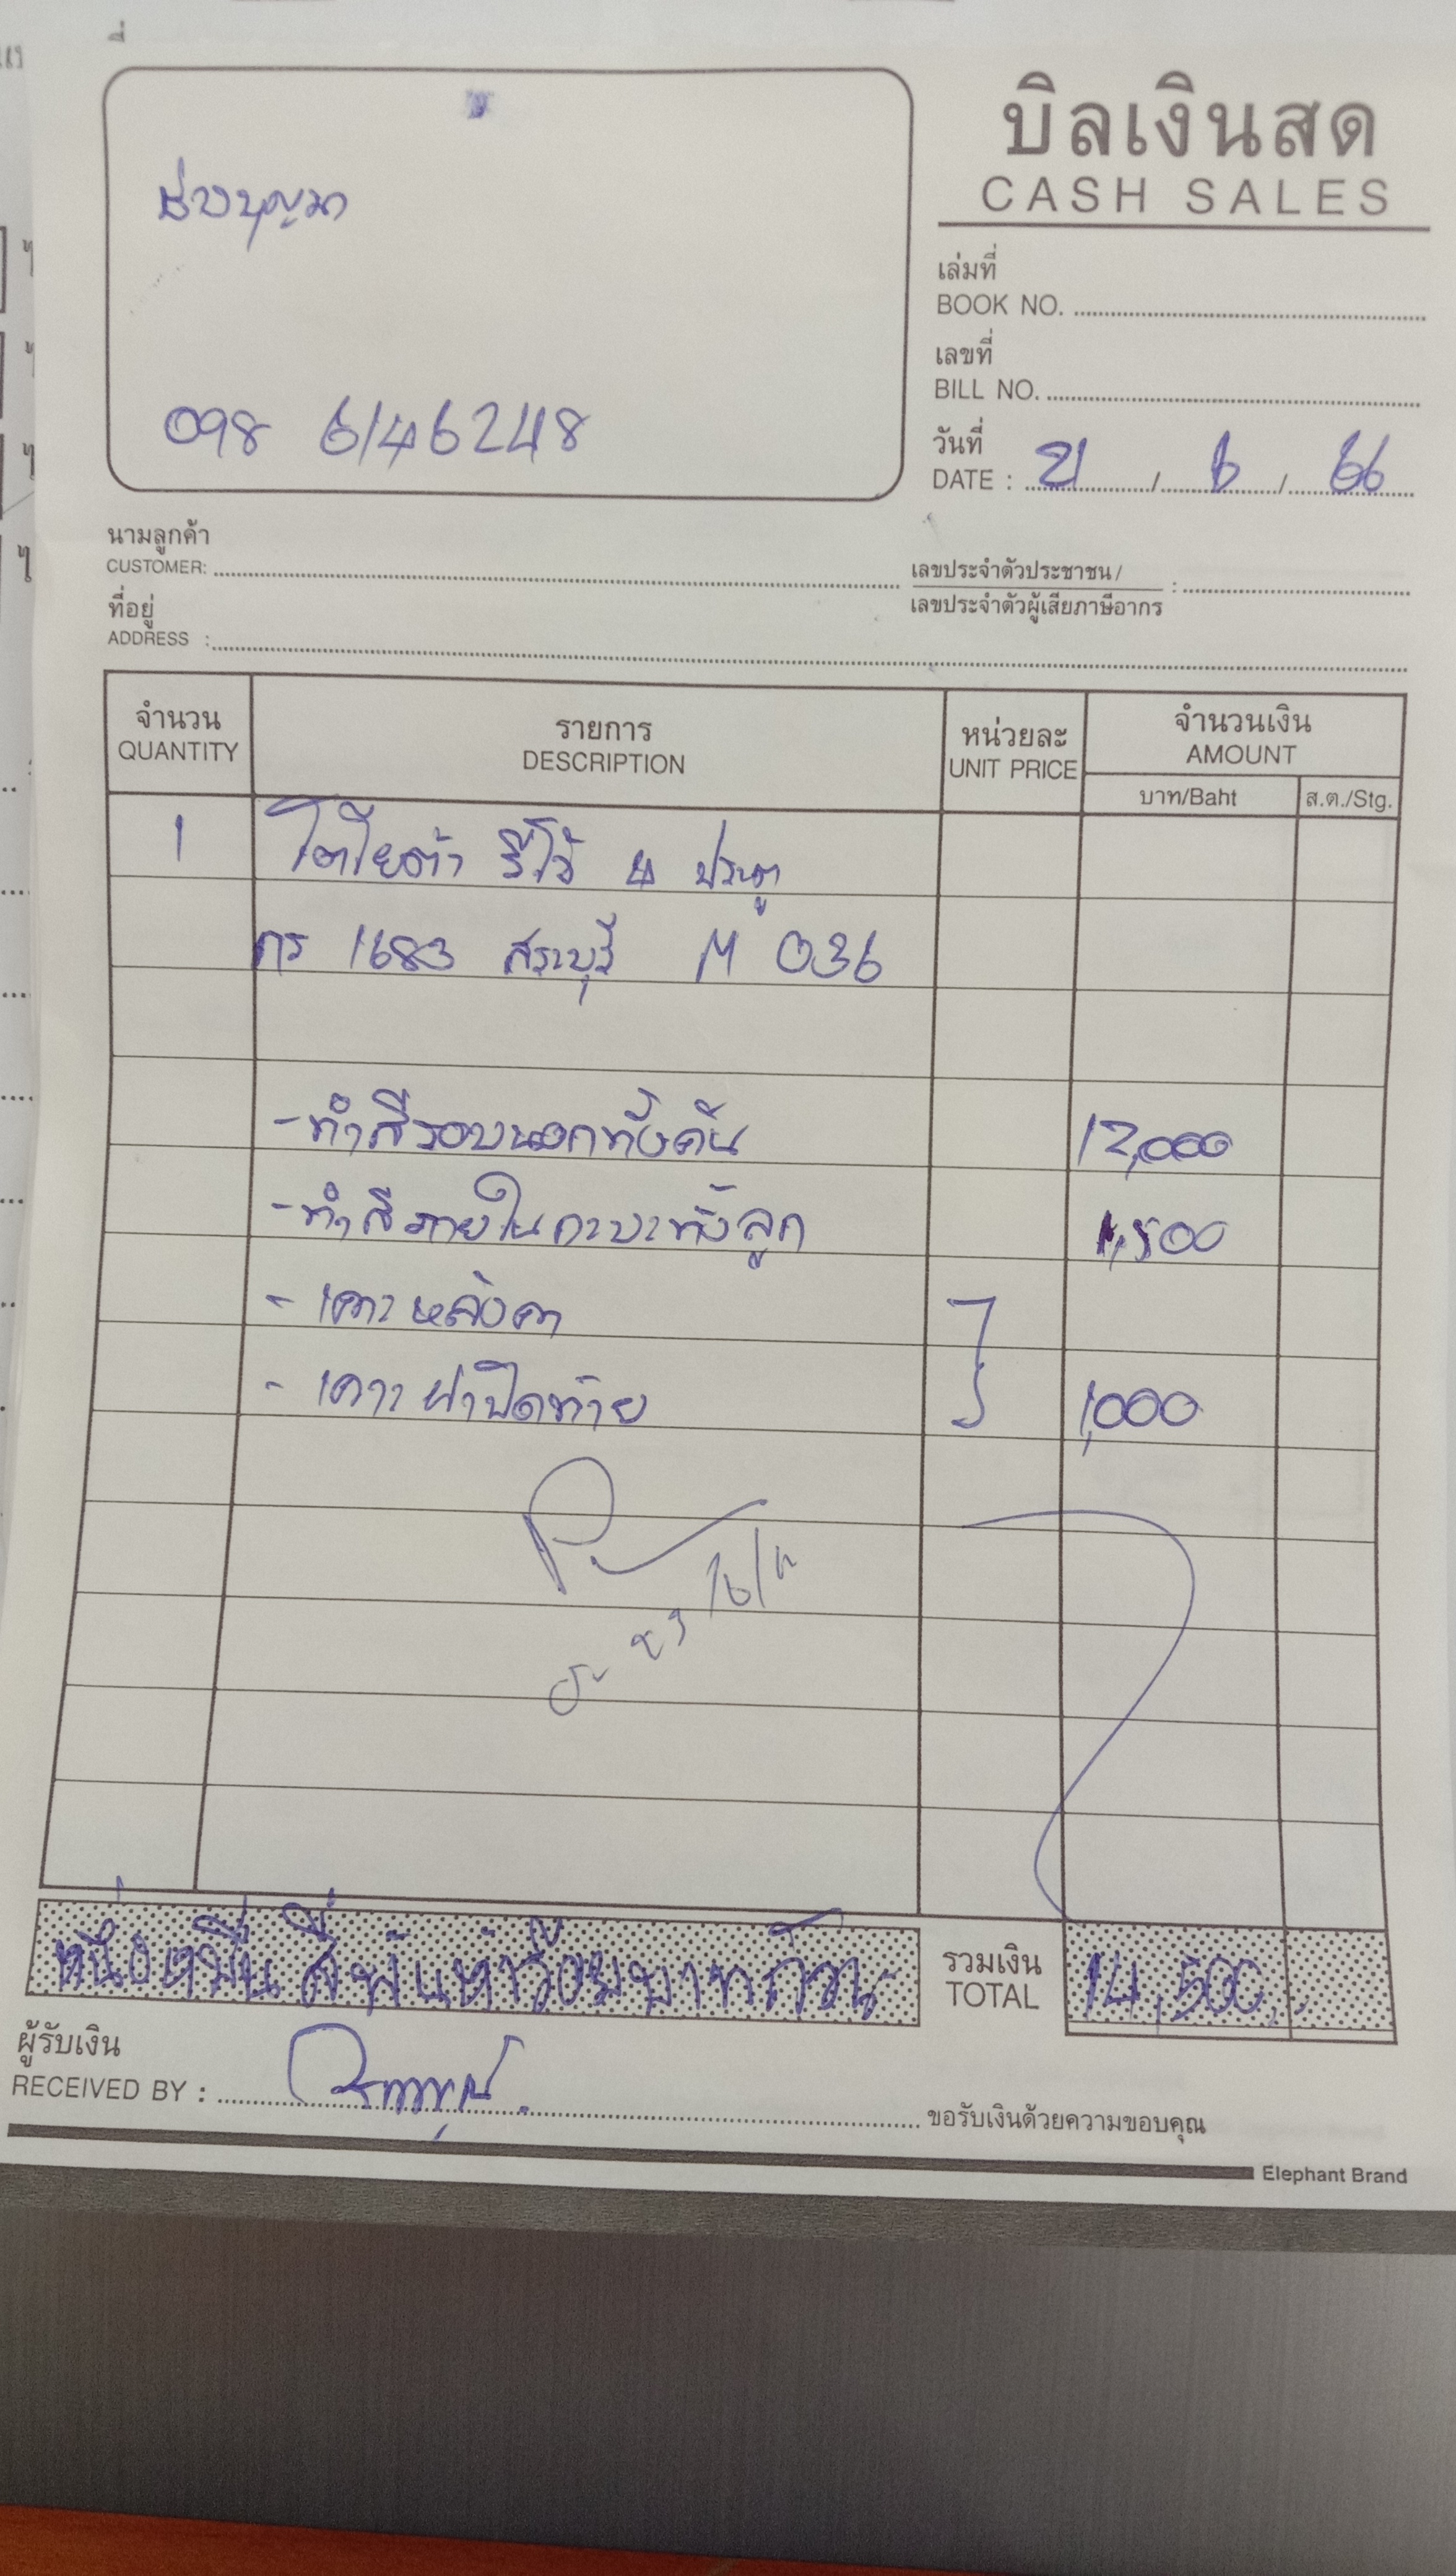 ที่
บิลเงินสด
CASH SALES
ช่างบุญมา
098 6146248
เล่มที่
BOOK NO.
เลขที่
BILL NO.
วันที่
DATE : 21 / 6 / 66
นามลูกค้า
CUSTOMER:
เลขประจำตัวประชาชน /
เลขประจำตัวผู้เสียภาษีอากร :
ที่อยู่
ADDRESS :
จำนวน รายการ หน่วยละ จำนวนเงิน
QUANTITY DESCRIPTION UNIT PRICE AMOUNT
บาท/Baht ส.ต./Stg.
1 โตโยต้า รีโว้ 4 ประตู
กร 1683 สระบุรี M 036
- ทำสีรอบนอกทั้งคัน 12,000
- ทำสีภายในกะบะทั้งลูก 1,500
- เคาะหลังคา
- เคาะฝาปิดท้าย 1,000
หนึ่งหมื่นสี่พันห้าร้อยบาทถ้วน
รวมเงิน
TOTAL 14,500.-
ผู้รับเงิน
RECEIVED BY : ขอรับเงินด้วยความขอบคุณ
Elephant Brand